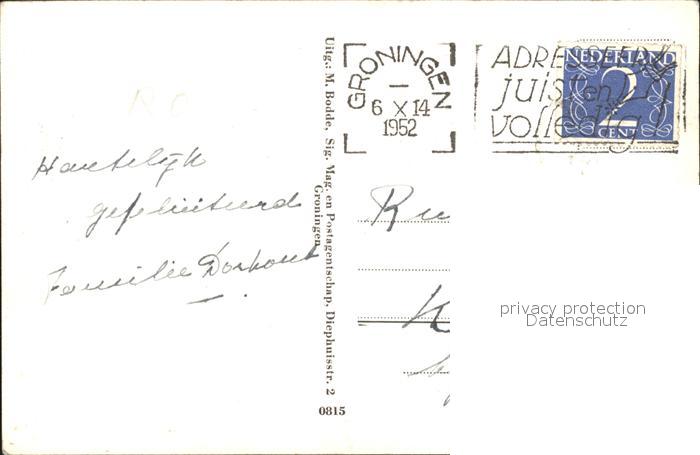 Hartelijk
gefeliciteerd
Familie Dorhout
Uitg.: M. Bodde, Sig. Mag. en Postagentschap, Diephuisstr. 2
Groningen
0815
GRONINGEN
6 X 14
1952
ADRESSEER
juist en
volledig
NEDERLAND
2
CENT
privacy protection
Datenschutz